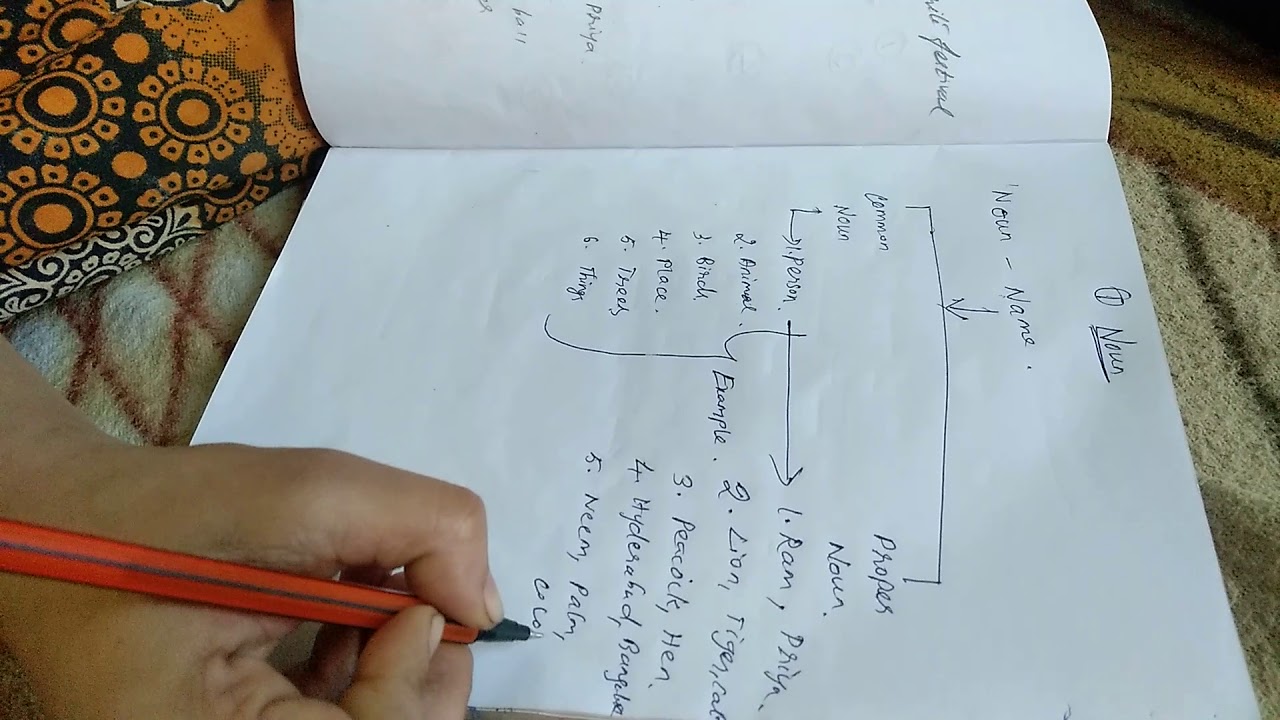 ① Noun
Noun - Name.
Common
Noun
Proper
Noun.
1. Person.
2. Animal.
3. Birds
4. Place.
5. Trees
6. Things
Example.
1. Ram, Priya.
2. Lion, Tiger, cat
3. Peacock, Hen.
4. Hyderabad, Bangalore
5. Neem, Palm,
coco
festival
Priya.
ball